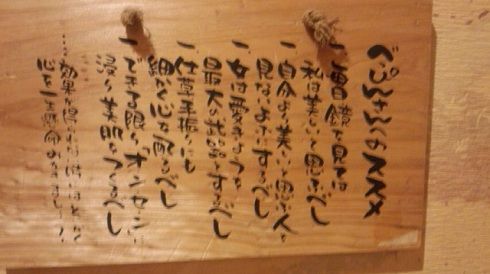 べっぴんさんのススメ
一、毎日鏡を見ては
私は美しいと思うべし
一、自分より美しいと思う人を
見ないようにするべし
一、女は愛きょうを
最大の武器にするべし
一、仕草振いにも
細かく心を配るべし
一、できる限り「オンセン」に
浸り美肌をつくるべし
……効果が得られない時は
心を一生懸命みがきましょう